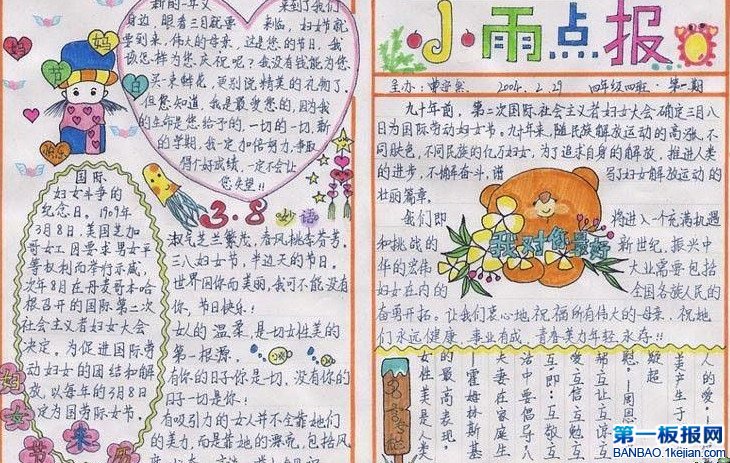 妈
妈
节
日
快乐
来到了我们
身边，眼看三日就要来临，妇女节就
要到来，伟大的母亲，这是您的节日。我
该怎样为您庆祝呢？我没有钱能为您
买一束鲜花，更别说精美的礼物了。
但您知道，我是最爱您的，因为我
的生命是您给予的，一切的一切。新
的学期，我一定加倍努力，争取
得个好成绩，一定不会让
您失望！！
国际
妇女斗争的
纪念日。1909年
3月8日，美国芝加
哥女工因要求男女平
等权利而举行示威，
次年8月在丹麦哥本哈
根召开的国际第二次
社会主义者妇女大会
决定，为促进国际劳
动妇女的团结和解
放，以每年的3月8日
定为国劳际女节。
妇女节来历
3·8 妙语
淑气芝兰繁茂，春风桃李芬芳。
三八妇女节，半边天的节日。
世界因你而美丽，我可不能没有
你，节日快乐！
女人的温柔，是一切女性美的
第一根源。
有你的日子你是一切，没有你的
日子一切是你！
有吸引力的女人并不全靠她们
的美力，而是靠她的漂亮，包括风
小雨点报
主办：
2004.2.29
四年级四班
第一期
九十年前，第二次国际社会主义者妇女大会确定三月八
日为国际劳动妇女节。九十年来，随民族解放运动的高涨，不
同肤色，不同民族的亿万妇女，为了追求自身的解放，推进人类
的进步，不懈奋斗，谱写妇女解放运动的
壮丽篇章。
我们即将进入一个充满机遇
和挑战的新世纪，振兴中
华的宏伟大业需要包括
妇女在内的全国各族人民的
奋勇开拓。让我们衷心地，祝福所有伟大的母亲，祝她
们永远健康，事业有成，青春美力年轻永存！！
我对您最好
人的爱！
美产生于
疑超
慰。—周恩
互让、互谅
爱、互信、互
即：互敬、互
活中要倡导八
夫妻在家庭生
—霍姆林斯基
的最高表现。
女性美是人类
第一板报网
BANBAO.1kejian.com